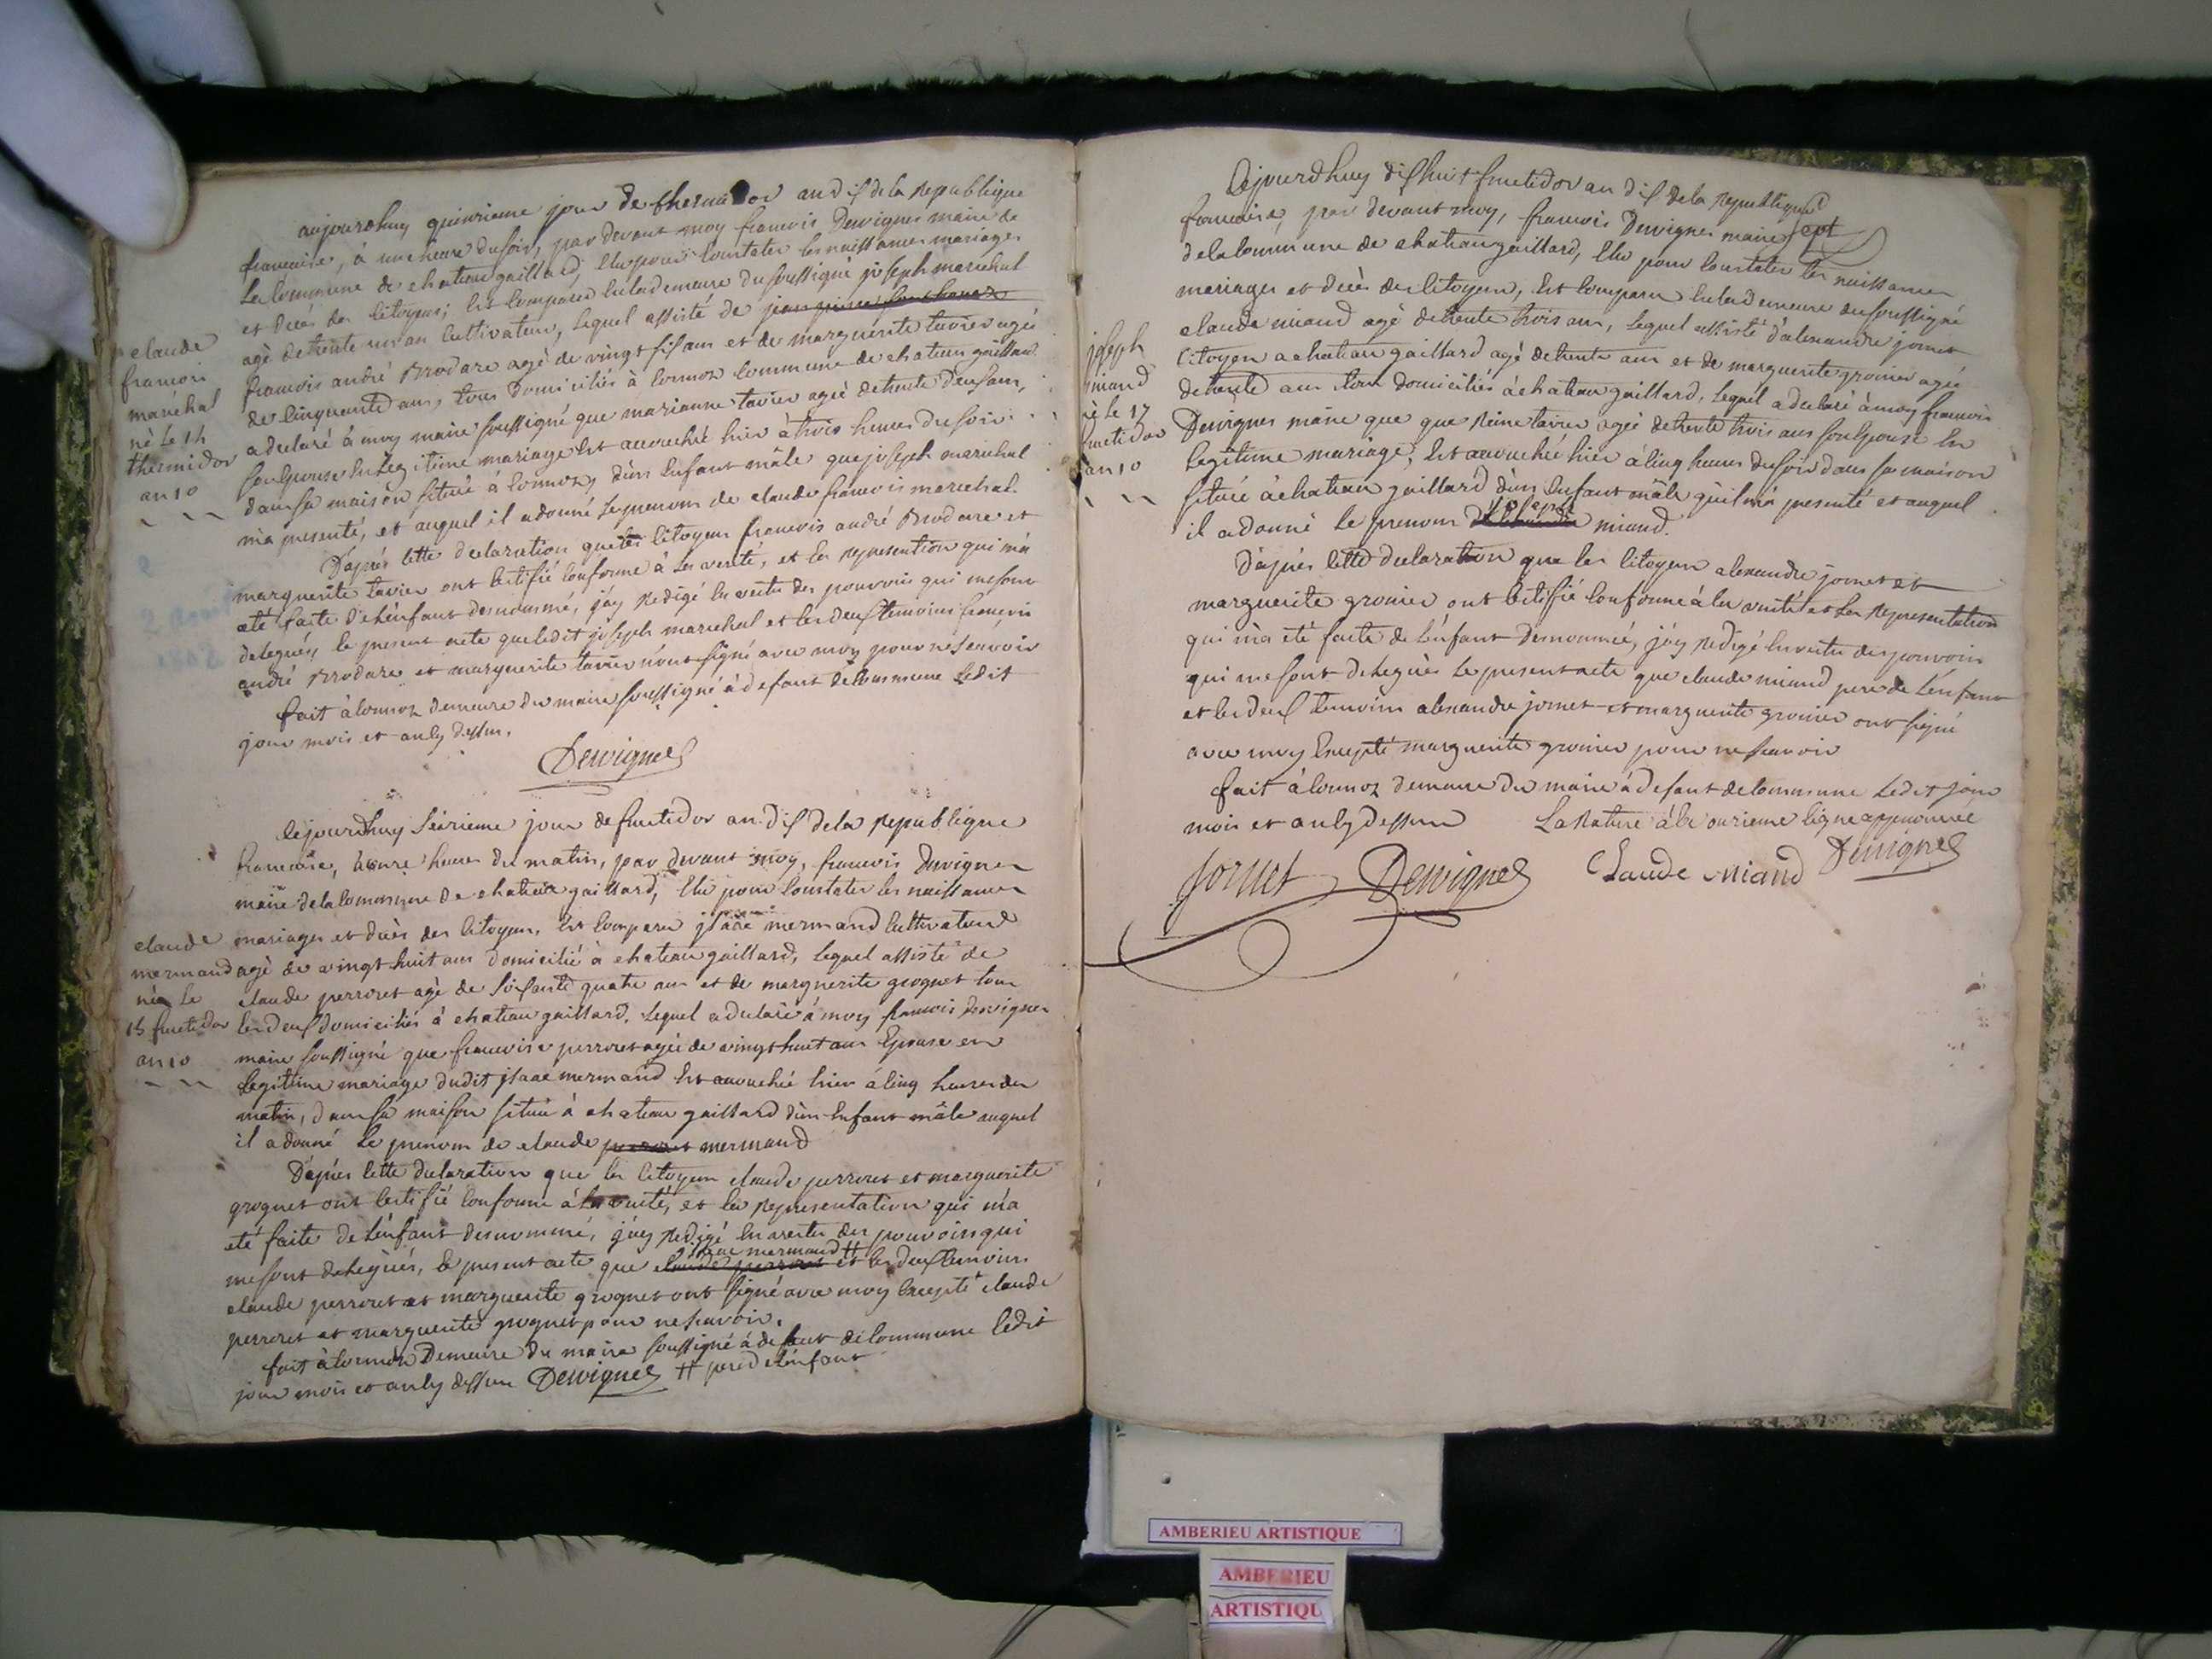 aujourdhuy quinzieme jour de thermidor an dix de la republique
francaise, à une heure du soir, par devant moy francois Dervignes maire de
la commune de chateau gaillard, elu pour constater les naissances mariages
et décés des citoyens; est comparu en la demeure du soussigné joseph marechal
agé de trente un an cultivateur, lequel assisté de
francois andré Brodare agé de vingt six ans et de marguerite tavier agée
de cinquante ans, tous domiciliés à cormoz commune de chateau gaillard
a declaré à moy maire soussigné que marianne tavier agée de trente deux ans,
son epouse en legitime mariage est accouchée hier à trois heures du soir
dans sa maison située à cormoz, d'un enfant mâle que joseph marechal
m'a presenté, et auquel il a donné le prenom de claude francois marechal.
D'aprés cette declaration que les citoyens francois andré Brodare et
marguerite tavier ont certifié conforme à la verité, et la representation qui m'a
eté faite de l'enfant denommé, j'ay redigé en vertu des pouvoirs qui me sont
delegués, le present acte que ledit joseph marechal et les deux temoins francois
andré Brodare et marguerite tavier n'ont signé avec moy pour ne scavoir
fait à cormoz demeure du maire soussigné à defaut de commune ledit
jour mois et an cy dessus.
Dervignes
claude
francois
maréchal
né le 14
thermidor
an 10
cejourdhuy seizieme jour de fructidor an dix de la republique
francaise, à onze heures du matin, par devant moy, francois Dervignes
maire de la commune de chateau gaillard, elu pour constater les naissances
mariages et décès des citoyens, est comparu jsaac mermand cultivateur
agé de vingt huit ans domicilié à chateau gaillard, lequel assisté de
claude perroret agé de soixante quatre ans et de marguerite groguet tous
les deux domiciliés à chateau gaillard, lequel a declaré à moy francois Dervignes
maire soussigné que francoise perroret agée de vingt huit ans epouse en
legitime mariage dudit jsaac mermand est accouchée hier à cinq heures du
matin, dans sa maison située à chateau gaillard d'un enfant mâle auquel
il a donné le prenom de claude perroret mermand
D'aprés cette declaration que les citoyens claude perroret et marguerite
groguet ont certifié conforme à la verité, et la representation qui m'a
eté faite de l'enfant denommé, j'ay redigé en vertu des pouvoirs qui
jsaac mermand #
me sont delegués, le present acte que claude perroret et les deux temoins
claude perroret et marguerite groguet ont signé avec moy excepté claude
perroret et marguerite groguet pour ne scavoir.
fait à cormoz demeure du maire soussigné à defaut de commune ledit
jour mois et an cy dessus Dervignes # pere de l'enfant
claude
mermand
né le
15 fructidor
an 10
cejourdhuy dix huit fructidor an dix de la republique
francaise, par devant moy, francois Dervignes maire
de la commune de chateau gaillard, elu pour constater les naissances
mariages et décès des citoyens, est comparu en la demeure du soussigné
claude miand agé de trente trois ans, lequel assisté d'alexandre jornet
citoyen a chateau gaillard agé de trente ans et de marguerite gronier agée
de trente ans tous domiciliés à chateau gaillard, lequel a declaré à moy francois
Dervignes maire que que Reine tavier agée de trente trois ans son epouse en
legitime mariage, est accouchée hier à cinq heures du soir dans sa maison
située à chateau gaillard d'un enfant mâle qu'il m'a presenté et auquel
il a donné le prenom de joseph miand.
D'aprés cette declaration que les citoyens alexandre jornet et
marguerite gronier ont certifié conforme à la verité et la representation
qui m'a eté faite de l'enfant denommé, j'ay redigé en vertu des pouvoirs
qui me sont delegués le present acte que claude miand pere de l'enfant
et les deux temoins alexandre jornet et marguerite gronier ont signé
avec moy excepté marguerite gronier pour ne scavoir
fait à cormoz demeure du maire à defaut de commune ledit jour
mois et an cy dessus La Rature à la onzieme ligne approuvée
Jornet Dervignes Claude Miand Dervignes
joseph
miand
né le 17
fructidor
an 10
AMBERIEU ARTISTIQUE
AMBERIEU
ARTISTIQU